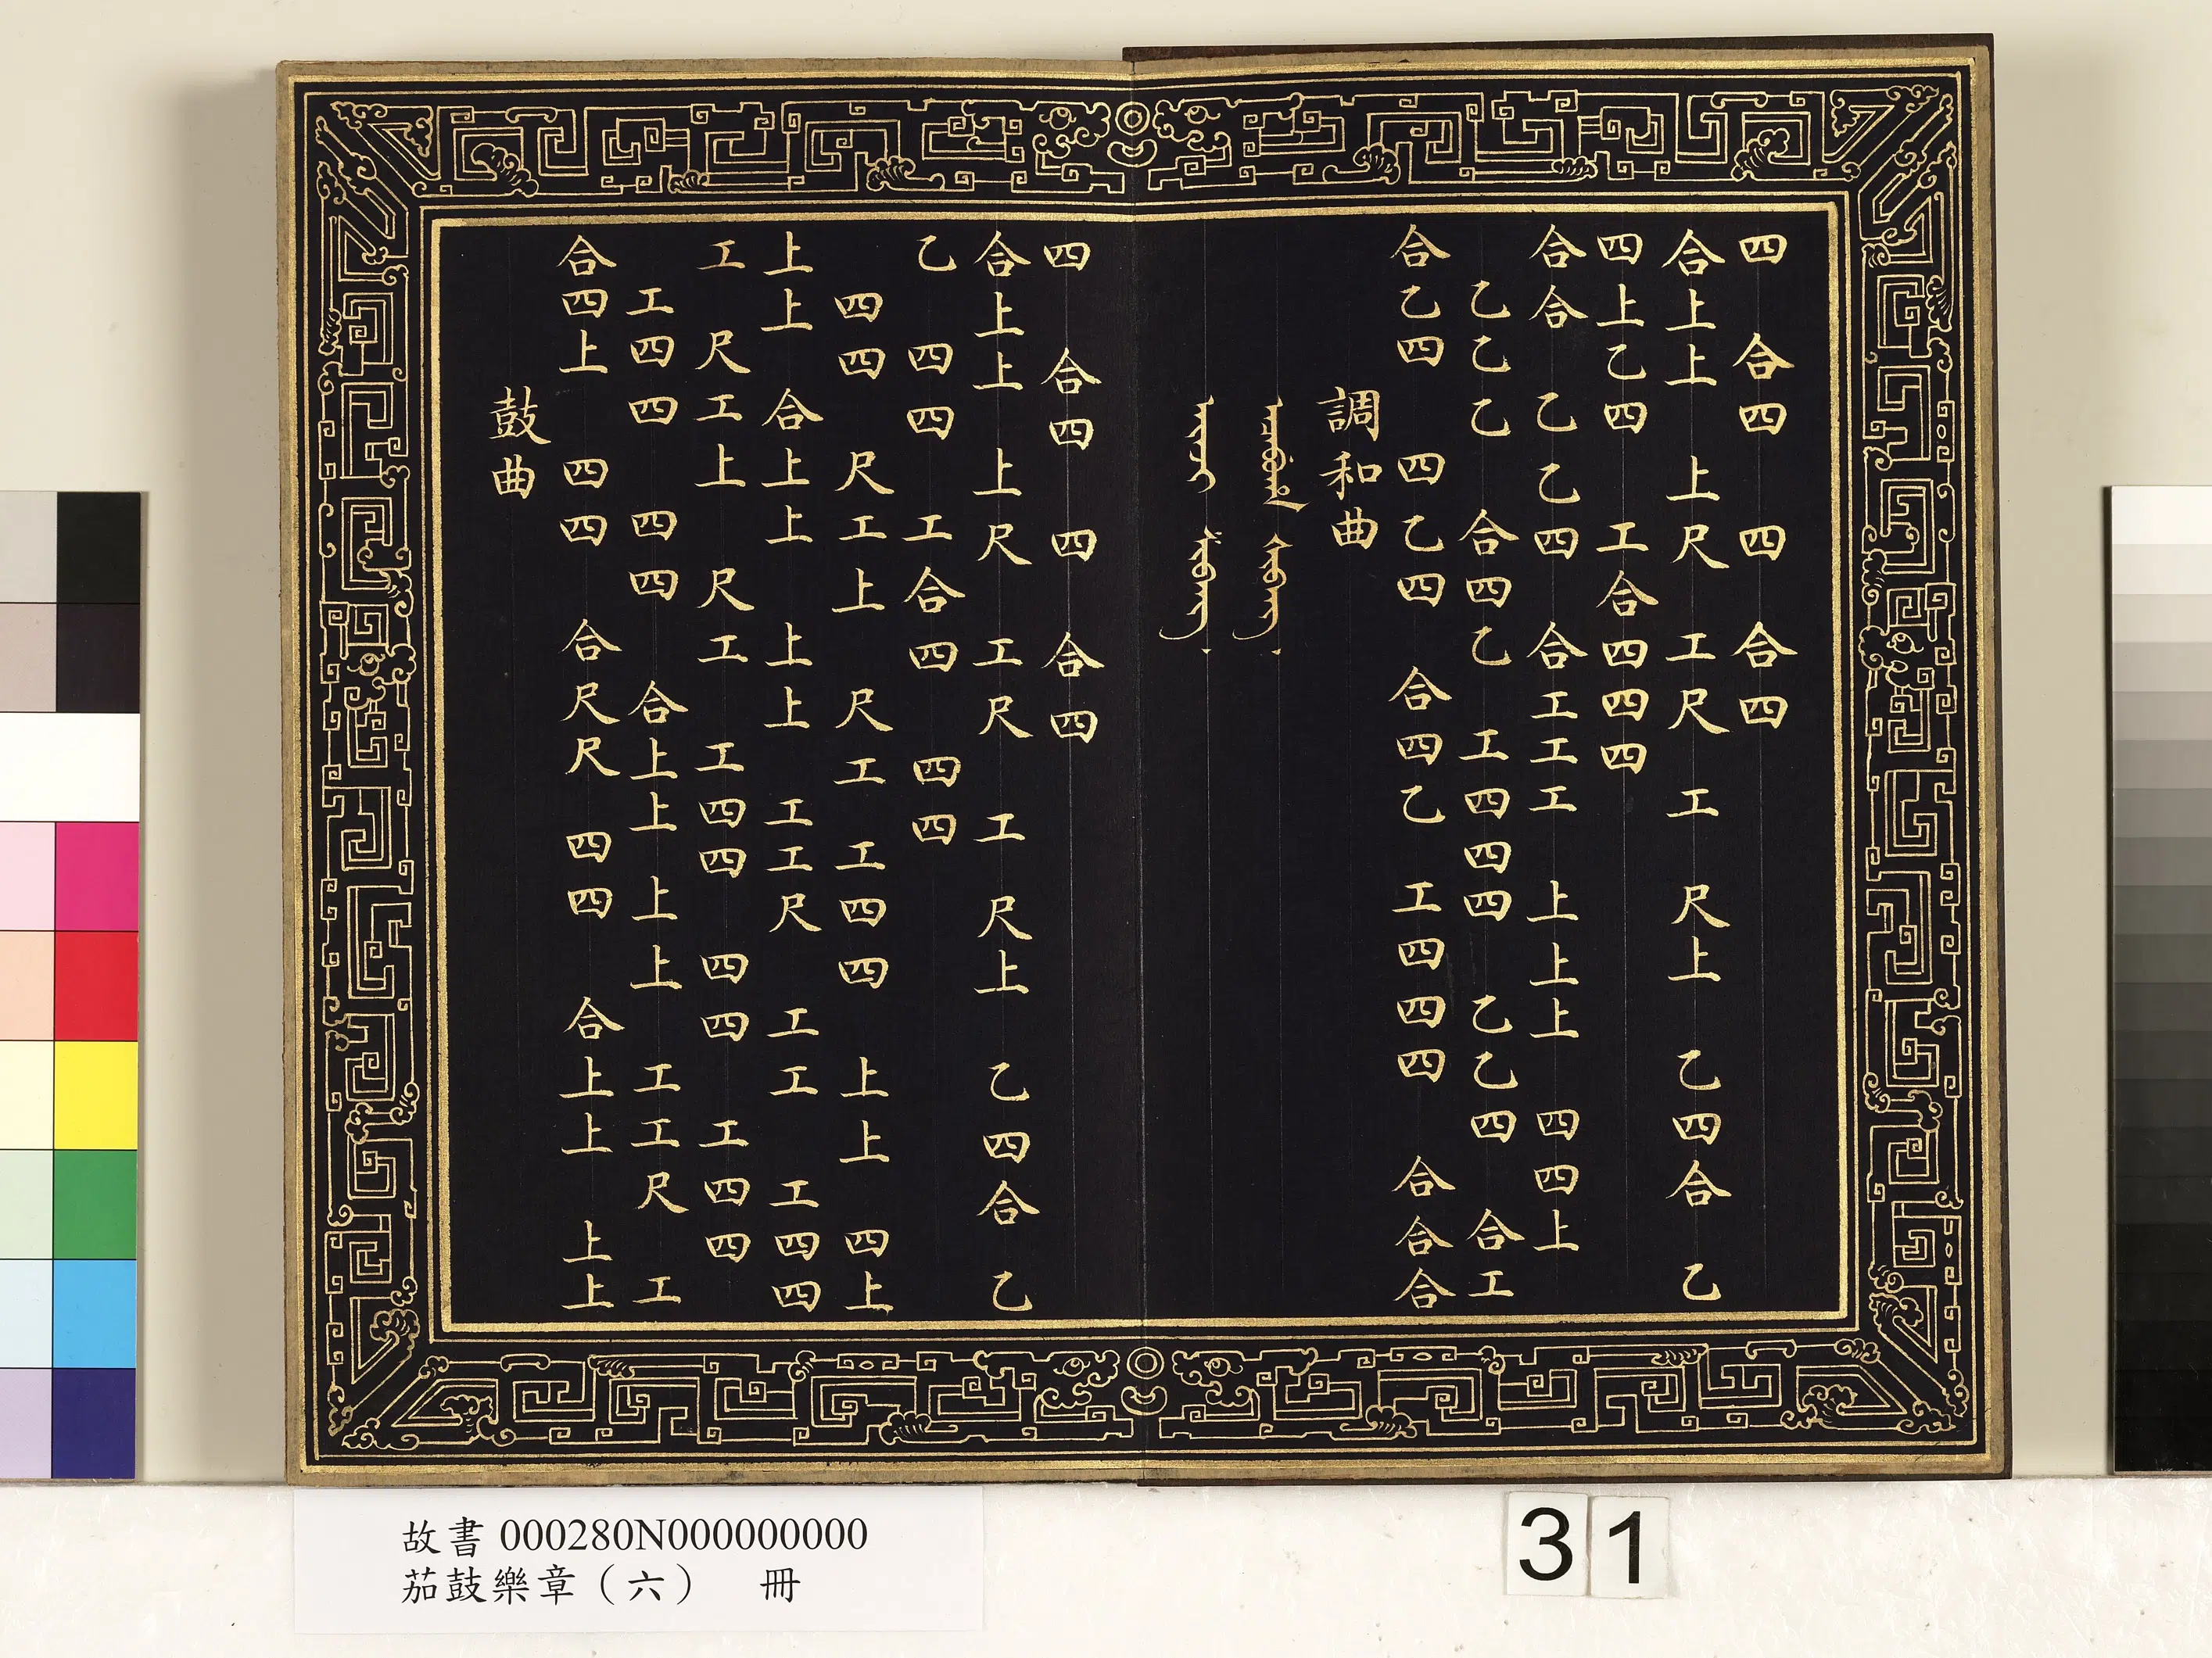 四 合四 四 合四
合上上 上尺 工尺 工 尺上 乙四合 乙
四上乙四 工合四四四
合合 乙乙四 合工工工 上上上 四四上
乙乙乙 合四乙 工四四四 乙乙四 合工
合乙四 四乙四 合四乙 工四四四 合合合
調和曲
四 合四 四 合四
合上上 上尺 工尺 工 尺上 乙四合 乙
乙 四四 工合四 四四
四四 尺工上 尺工 工四四 上上 四上
上上 合上上 上上 工工尺 工工 工四四
工 尺工上 尺工 工四四 四四 工四四
工四四 四四 合上上 上上 工工尺 工
合四上 四四 合尺尺 四四 合上上 上上
鼓曲
故書 000280N000000000
茄鼓樂章（六） 冊
31